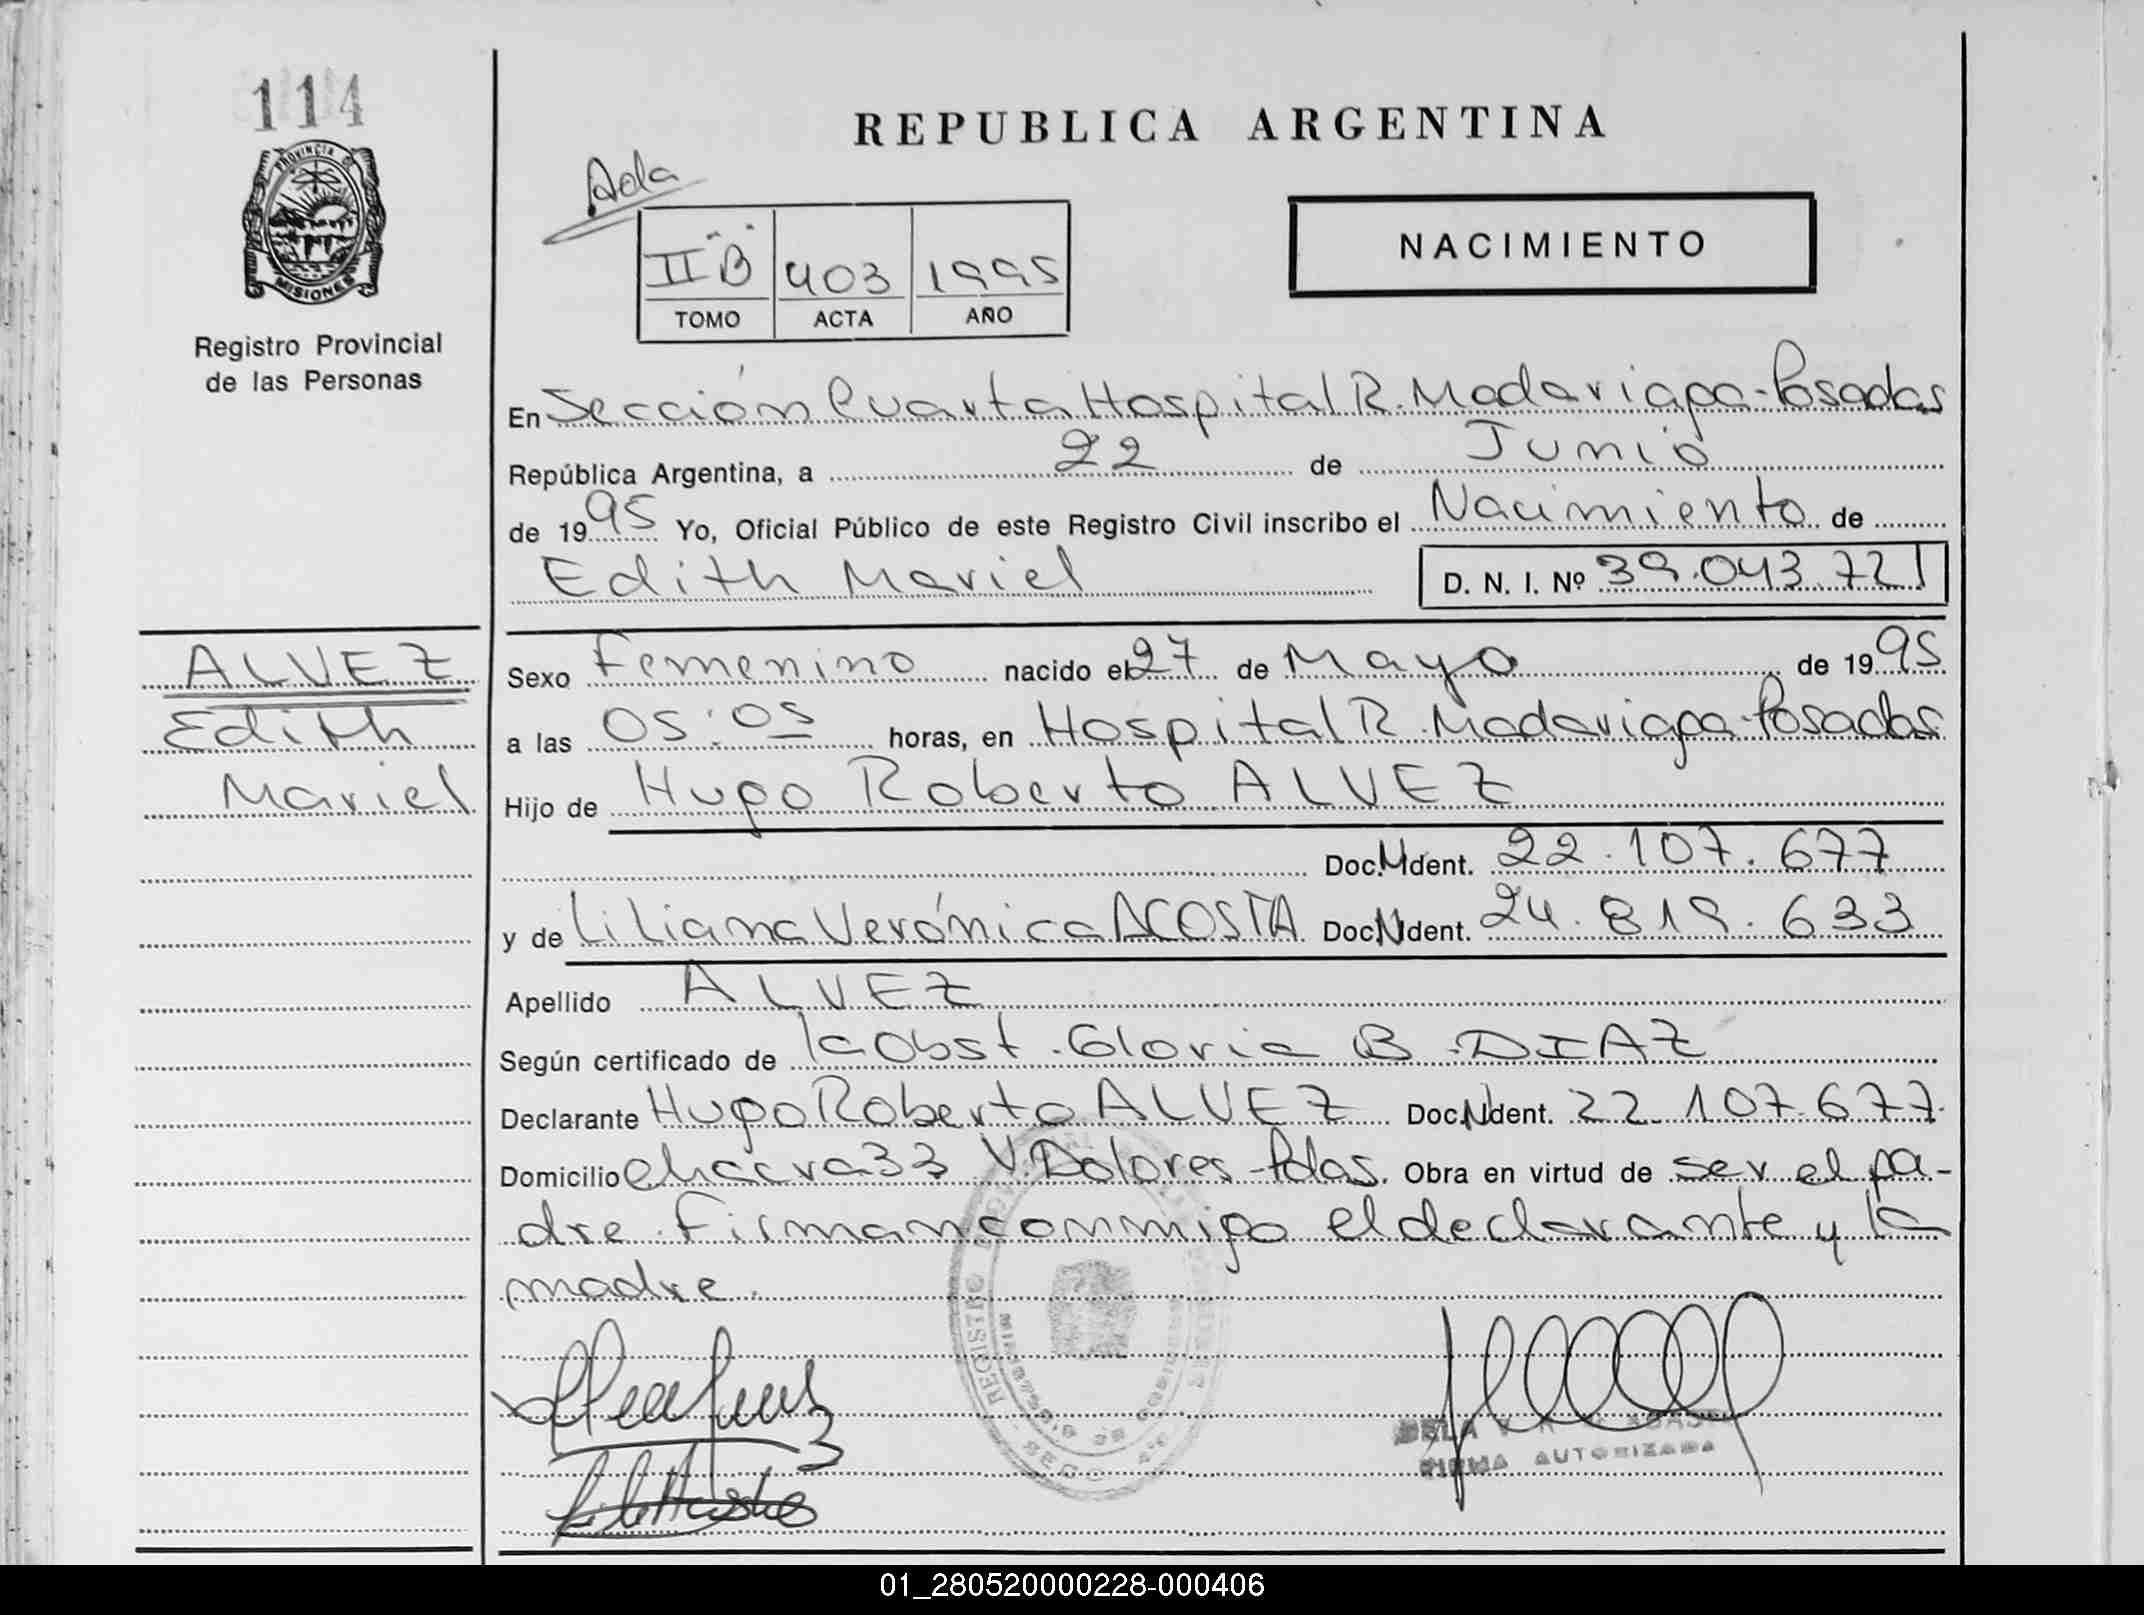 114
PROVINCIA DE
MISIONES
Registro Provincial
de las Personas
REPUBLICA ARGENTINA
Ada
II "B" 403 1995
TOMO ACTA AÑO
NACIMIENTO
En Sección Cuarta Hospital R. Madariaga-Posadas
República Argentina, a 22 de Junio
de 1995 Yo, Oficial Público de este Registro Civil inscribo el Nacimiento de
Edith Mariel D. N. I. Nº 39.043.721
ALVEZ
Edith
Mariel
Sexo Femenino nacido el 27 de Mayo de 1995
a las 05:05 horas, en Hospital R. Madariaga-Posadas
Hijo de Hugo Roberto ALVEZ
Doc. Ident. 22.107.677
y de Liliana Verónica ACOSTA Doc. Ident. 24.819.633
Apellido ALVEZ
Según certificado de la Obst. Gloria B. DIAZ
Declarante Hugo Roberto ALVEZ Doc. Ident. 22.107.677
Domicilio Chacra 33 V. Dolores-Pdas. Obra en virtud de ser el pa-
dre. Firman conmigo el declarante y la
madre.
REGISTRO
FIRMA AUTORIZADA
01_280520000228-000406